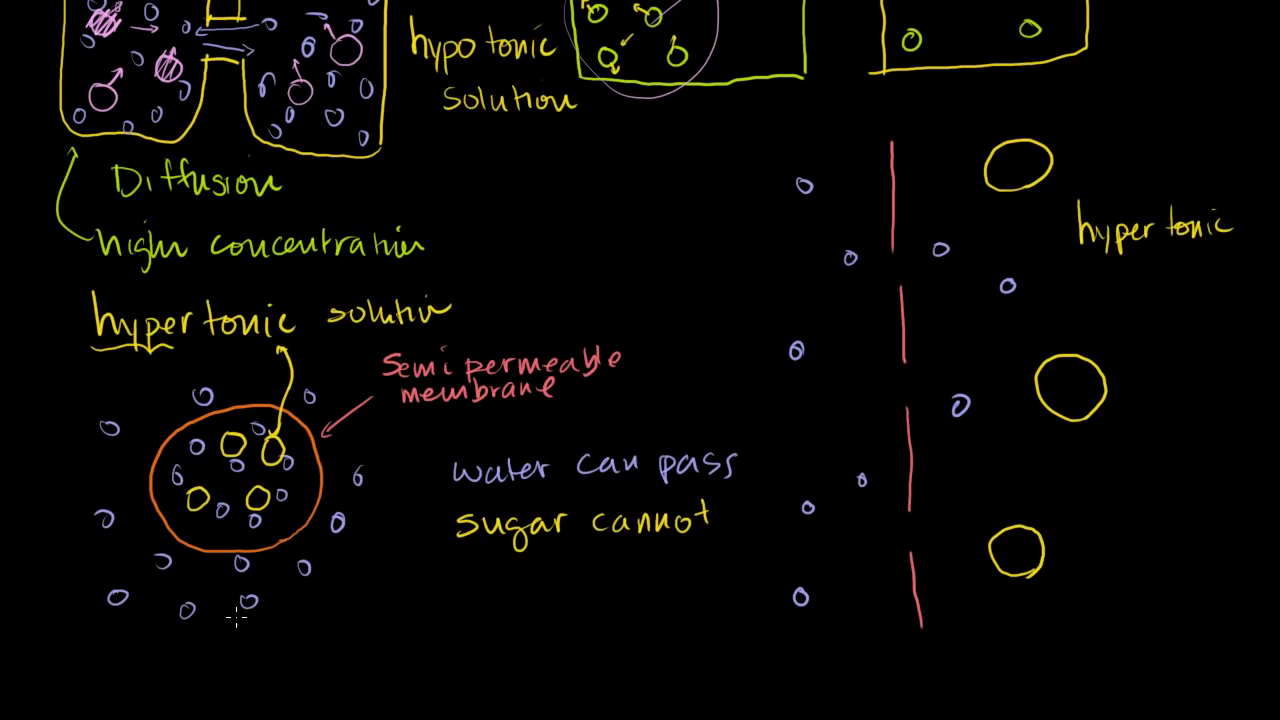 hypotonic
solution
Diffusion
high concentration
hypertonic
hypertonic solution
Semipermeable
membrane
water can pass
sugar cannot